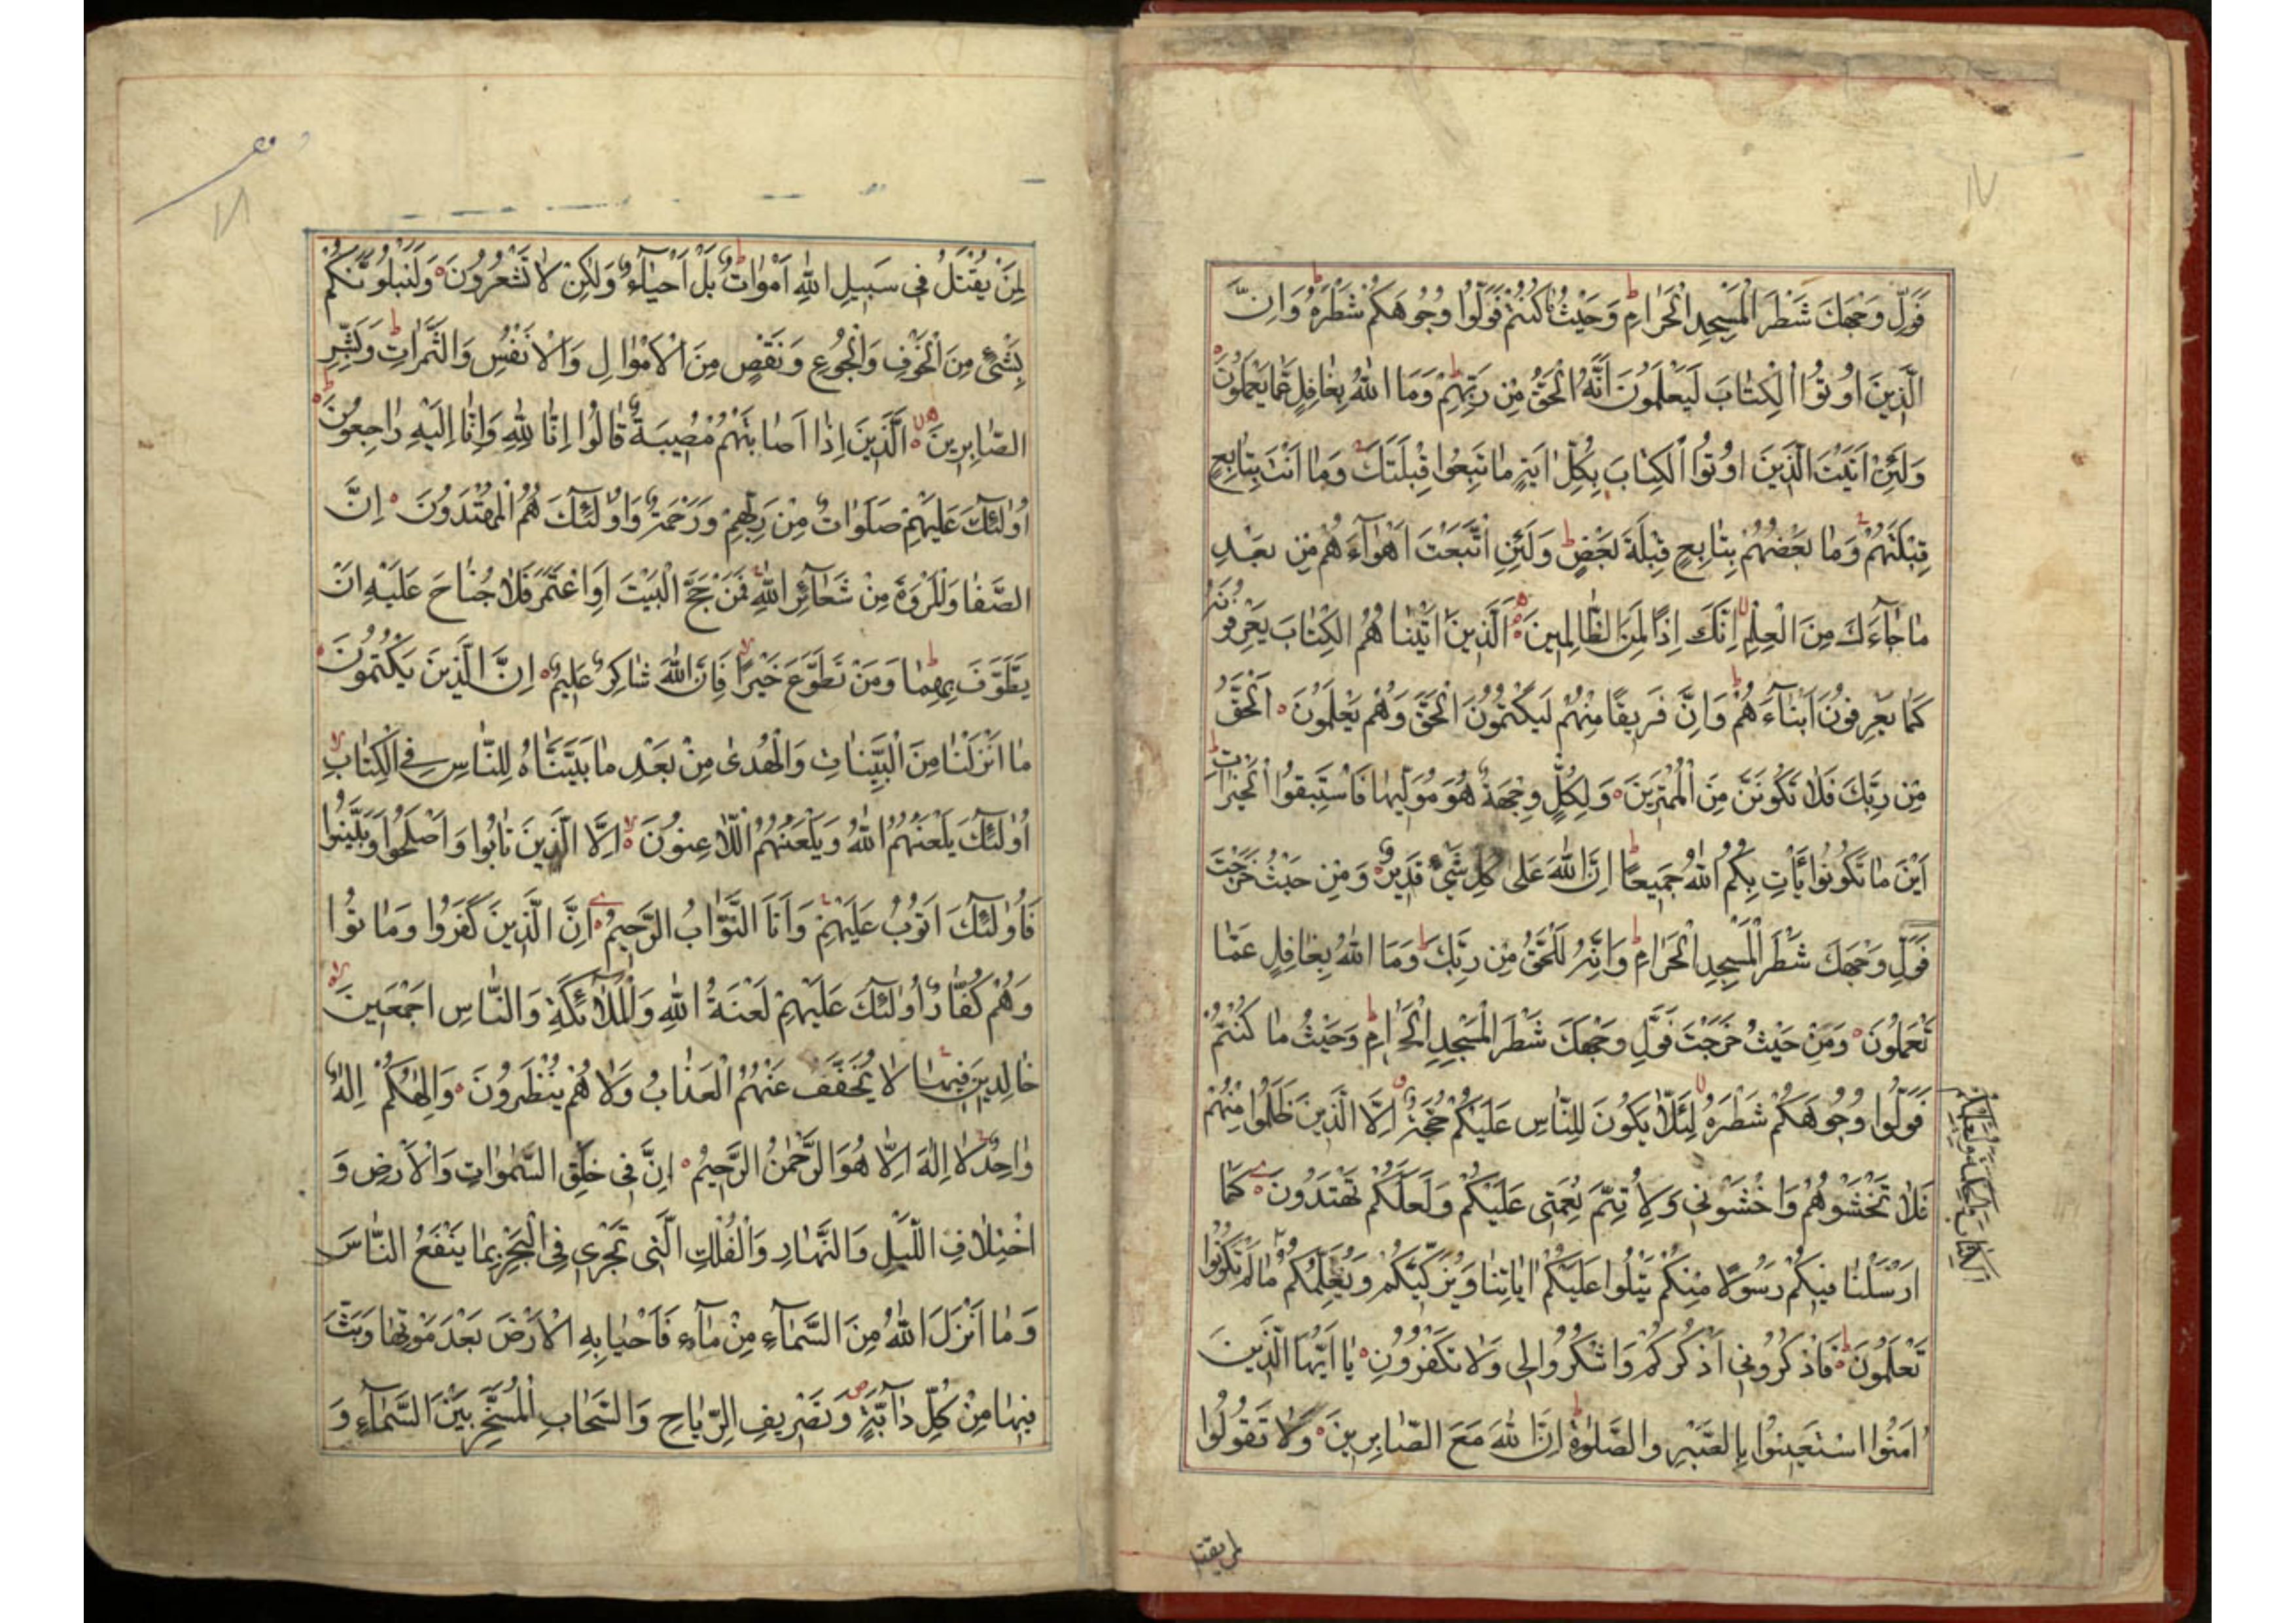 ١٧
فَوَلِّ وَجْهَكَ شَطْرَ الْمَسْجِدِ الْحَرَامِ وَحَيْثُ مَا كُنْتُمْ فَوَلُّوا وُجُوهَكُمْ شَطْرَهُ وَاِنَّ
الَّذِينَ اُوتُوا الْكِتَابَ لَيَعْلَمُونَ اَنَّهُ الْحَقُّ مِنْ رَبِّهِمْ وَمَا اللهُ بِغَافِلٍ عَمَّا يَعْمَلُونَ
وَلَئِنْ اَتَيْتَ الَّذِينَ اُوتُوا الْكِتَابَ بِكُلِّ اٰيَةٍ مَا تَبِعُوا قِبْلَتَكَ وَمَا اَنْتَ بِتَابِعٍ
قِبْلَتَهُمْ وَمَا بَعْضُهُمْ بِتَابِعٍ قِبْلَةَ بَعْضٍ وَلَئِنِ اتَّبَعْتَ اَهْوَآءَهُمْ مِنْ بَعْدِ
مَا جَآءَكَ مِنَ الْعِلْمِ اِنَّكَ اِذًا لَمِنَ الظَّالِمِينَ اَلَّذِينَ اٰتَيْنَا هُمُ الْكِتَابَ يَعْرِفُونَهُ
كَمَا يَعْرِفُونَ اَبْنَآءَهُمْ وَاِنَّ فَرِيقًا مِنْهُمْ لَيَكْتُمُونَ الْحَقَّ وَهُمْ يَعْلَمُونَ اَلْحَقُّ
مِنْ رَبِّكَ فَلَا تَكُونَنَّ مِنَ الْمُمْتَرِينَ وَلِكُلٍّ وِجْهَةٌ هُوَ مُوَلِّيهَا فَاسْتَبِقُوا الْخَيْرَاتِ
اَيْنَ مَا تَكُونُوا يَأْتِ بِكُمُ اللهُ جَمِيعًا اِنَّ اللهَ عَلَى كُلِّ شَيْءٍ قَدِيرٌ وَمِنْ حَيْثُ خَرَجْتَ
فَوَلِّ وَجْهَكَ شَطْرَ الْمَسْجِدِ الْحَرَامِ وَاِنَّهُ لَلْحَقُّ مِنْ رَبِّكَ وَمَا اللهُ بِغَافِلٍ عَمَّا
تَعْمَلُونَ وَمِنْ حَيْثُ خَرَجْتَ فَوَلِّ وَجْهَكَ شَطْرَ الْمَسْجِدِ الْحَرَامِ وَحَيْثُ مَا كُنْتُمْ
فَوَلُّوا وُجُوهَكُمْ شَطْرَهُ لِئَلَّا يَكُونَ لِلنَّاسِ عَلَيْكُمْ حُجَّةٌ اِلَّا الَّذِينَ ظَلَمُوا مِنْهُمْ
فَلَا تَخْشَوْهُمْ وَاخْشَوْنِي وَلِاُتِمَّ نِعْمَتِي عَلَيْكُمْ وَلَعَلَّكُمْ تَهْتَدُونَ كَمَا
اَرْسَلْنَا فِيكُمْ رَسُولًا مِنْكُمْ يَتْلُوا عَلَيْكُمْ اٰيَاتِنَا وَيُزَكِّيكُمْ وَيُعَلِّمُكُمْ مَا لَمْ تَكُونُوا
الْكِتَابَ وَالْحِكْمَةَ وَيُعَلِّمُكُمْ
تَعْلَمُونَ فَاذْكُرُونِي اَذْكُرْكُمْ وَاشْكُرُوا لِي وَلَا تَكْفُرُونِ يَا اَيُّهَا الَّذِينَ
اٰمَنُوا اسْتَعِينُوا بِالصَّبْرِ وَالصَّلٰوةِ اِنَّ اللهَ مَعَ الصَّابِرِينَ وَلَا تَقُولُوا
لمن يقتل
١٨
لِمَنْ يُقْتَلُ فِي سَبِيلِ اللهِ اَمْوَاتٌ بَلْ اَحْيَآءٌ وَلٰكِنْ لَا تَشْعُرُونَ وَلَنَبْلُوَنَّكُمْ
بِشَيْءٍ مِنَ الْخَوْفِ وَالْجُوعِ وَنَقْصٍ مِنَ الْاَمْوَالِ وَالْاَنْفُسِ وَالثَّمَرَاتِ وَبَشِّرِ
الصَّابِرِينَ اَلَّذِينَ اِذَا اَصَابَتْهُمْ مُصِيبَةٌ قَالُوا اِنَّا لِلّٰهِ وَاِنَّا اِلَيْهِ رَاجِعُونَ
اُولٰئِكَ عَلَيْهِمْ صَلَوَاتٌ مِنْ رَبِّهِمْ وَرَحْمَةٌ وَاُولٰئِكَ هُمُ الْمُهْتَدُونَ اِنَّ
الصَّفَا وَالْمَرْوَةَ مِنْ شَعَآئِرِ اللهِ فَمَنْ حَجَّ الْبَيْتَ اَوِ اعْتَمَرَ فَلَا جُنَاحَ عَلَيْهِ اَنْ
يَطَّوَّفَ بِهِمَا وَمَنْ تَطَوَّعَ خَيْرًا فَاِنَّ اللهَ شَاكِرٌ عَلِيمٌ اِنَّ الَّذِينَ يَكْتُمُونَ
مَا اَنْزَلْنَا مِنَ الْبَيِّنَاتِ وَالْهُدٰى مِنْ بَعْدِ مَا بَيَّنَّاهُ لِلنَّاسِ فِي الْكِتَابِ
اُولٰئِكَ يَلْعَنُهُمُ اللهُ وَيَلْعَنُهُمُ اللَّاعِنُونَ اِلَّا الَّذِينَ تَابُوا وَاَصْلَحُوا وَبَيَّنُوا
فَاُولٰئِكَ اَتُوبُ عَلَيْهِمْ وَاَنَا التَّوَّابُ الرَّحِيمُ اِنَّ الَّذِينَ كَفَرُوا وَمَاتُوا
وَهُمْ كُفَّارٌ اُولٰئِكَ عَلَيْهِمْ لَعْنَةُ اللهِ وَالْمَلٰآئِكَةِ وَالنَّاسِ اَجْمَعِينَ
خَالِدِينَ فِيهَا لَا يُخَفَّفُ عَنْهُمُ الْعَذَابُ وَلَا هُمْ يُنْظَرُونَ وَاِلٰهُكُمْ اِلٰهٌ
وَاحِدٌ لَا اِلٰهَ اِلَّا هُوَ الرَّحْمٰنُ الرَّحِيمُ اِنَّ فِي خَلْقِ السَّمٰوَاتِ وَالْاَرْضِ وَ
اخْتِلَافِ اللَّيْلِ وَالنَّهَارِ وَالْفُلْكِ الَّتِي تَجْرِي فِي الْبَحْرِ بِمَا يَنْفَعُ النَّاسَ
وَمَا اَنْزَلَ اللهُ مِنَ السَّمَآءِ مِنْ مَآءٍ فَاَحْيَا بِهِ الْاَرْضَ بَعْدَ مَوْتِهَا وَبَثَّ
فِيهَا مِنْ كُلِّ دَآبَّةٍ وَتَصْرِيفِ الرِّيَاحِ وَالسَّحَابِ الْمُسَخَّرِ بَيْنَ السَّمَآءِ وَ